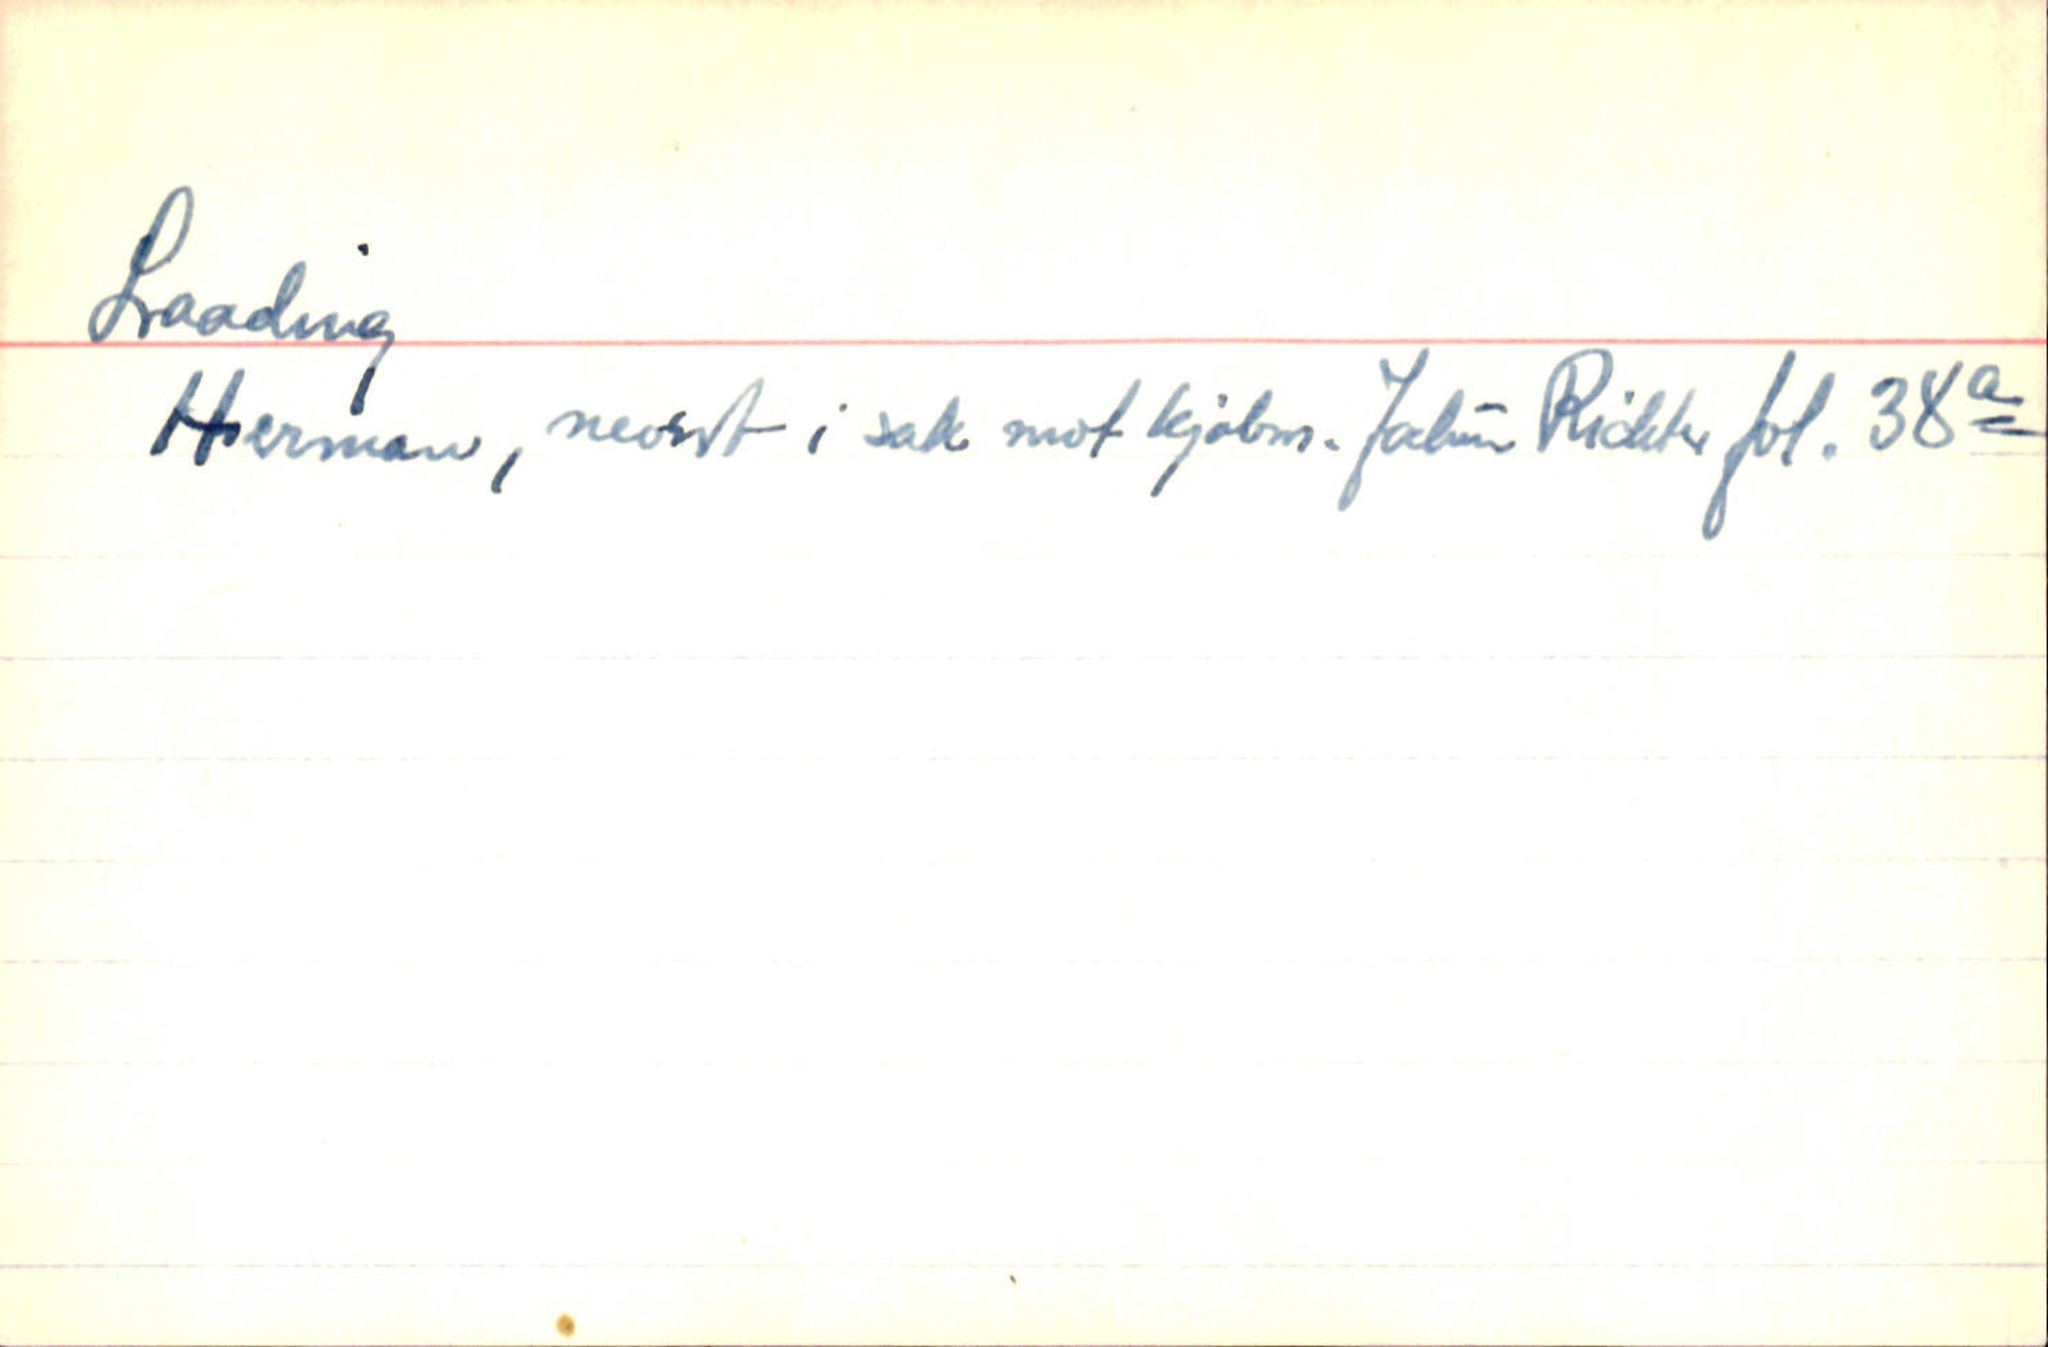 Laading
Herman, nevnt i sak mot kjøbm. Jochim Richter fol. 38a